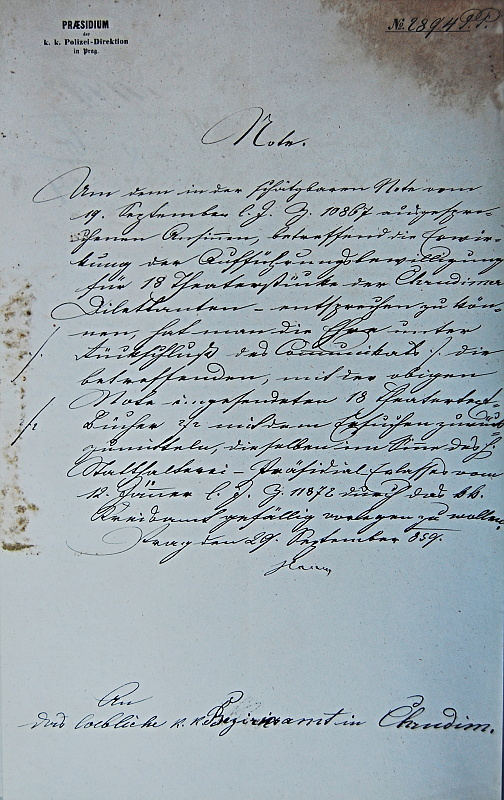 PRÆSIDIUM
der
k. k. Polizei-Direktion
in Prag.
No. 2894 P.P.
Note.
Um dem in der schätzbaren Note vom
19. September l. J. Z. 10867 ausgespro-
chenen Ansinnen, betreffend die Erwir-
kung der Aufführungsbewilligung
für 18 Theaterstücke der Chrudimer
Dilettanten – entsprechen zu kön-
nen, hat man die Ehre unter
Rückschluß des Comunikats ./. die
betreffenden, mit der obigen
Note eingesendeten 18 Theatertext-
Bücher mit dem Ersuchen zurück
zumitteln, dieselben im Sinne des h.
Statthalterei-Präsidial-Erlasses vom
12. Jänner l. J. Z. 11872 durch das k.k.
Kreisamt gefällig vorlegen zu wollen.
Prag den 29. September 859.
An
das loebliche k. k. Bezirksamt in Chrudim.